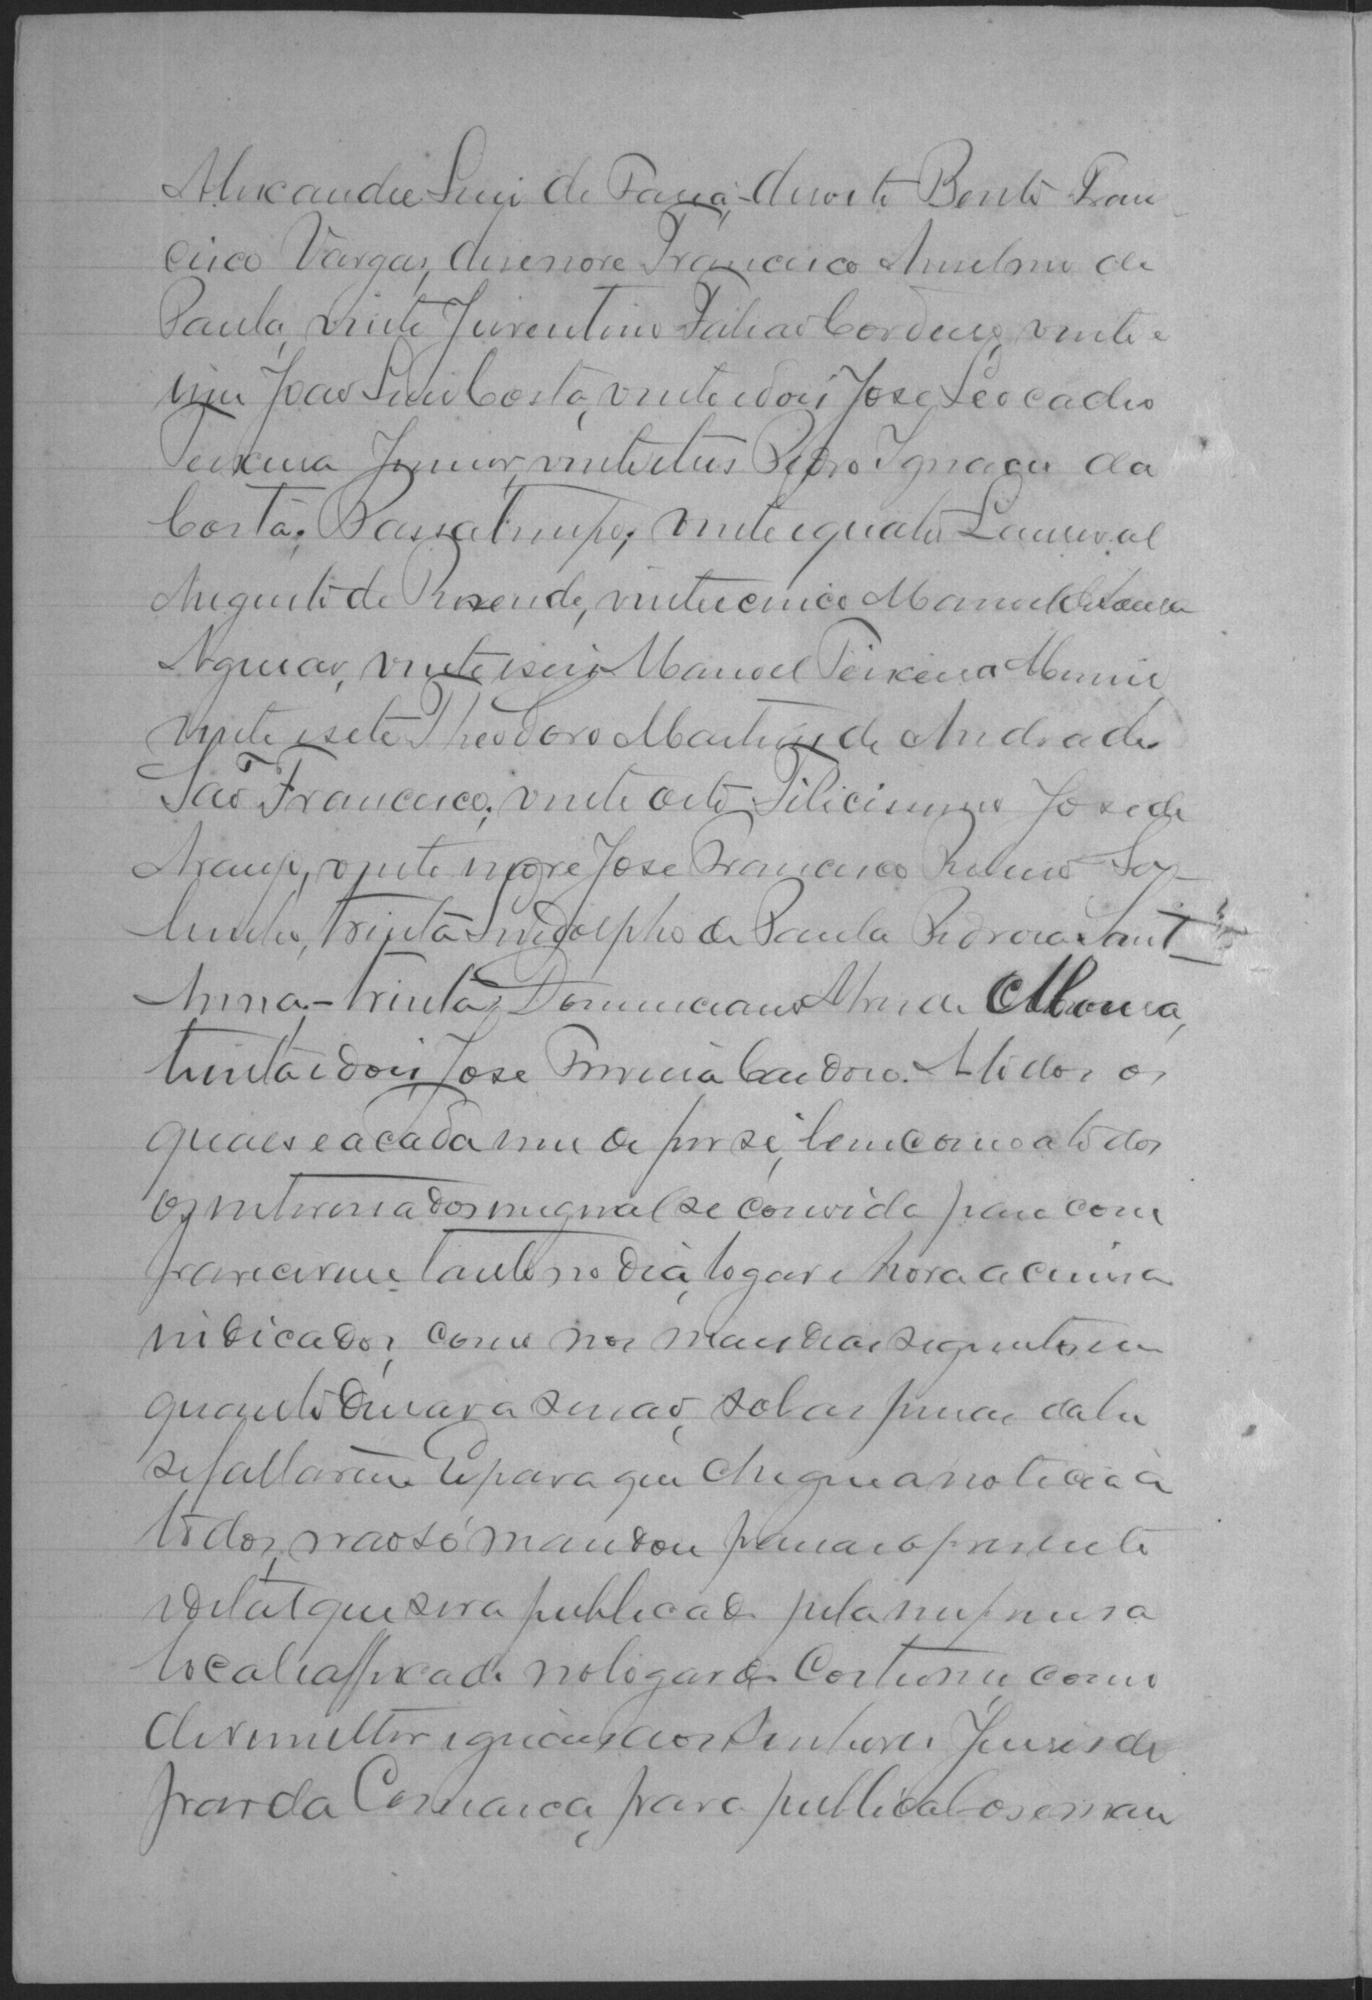 Alexandre Luiz de Faria, desoito Bento Fran-
cisco Vargas, desenove Francisco Anselmo de
Paula, vinte Juventino Fabiao Cordeiro, vinte e
um Joao Luiz Costa, vinte e dois Jose Leocadio
Teixeira Junior, vinte e tres Pedro Ignacio da
Costa; Passatempo, vinte e quatro Lourival
Augusto de Resende, vinte e cinco Manoel de Souza
Aguiar, vinte e seis Manoel Teixeira
vinte e sete Theodoro Martins de Andrade
São Francisco; vinte oito Felicissimo Jose de
Araujo, vinte nove Jose Francisco
trinta de Paula Pedrosa Sant
Anna - trinta Domiciano de Moura,
trinta e dois Jose Ferreira Cardoso. A todos os
quaes e a cada um de per se, bem como a todos
os interessados em geral se convida para com
parecerem tanto no dia, logar e hora acima
indicados, como nos mais dias seguintes em
quanto durar a sessao, sob as penas da lei
se faltarem. E para que chegue a noticia à
todos, nao só mandou passar o presente
edital que sera publicado pela imprensa
local e affixado no logar do Costume, como
de remetter iguaes aos Senhores Juises de
par da Comarca, para publical os e man